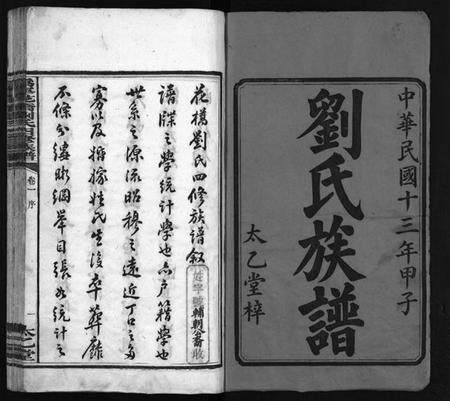 中華民國十三年甲子
劉氏族譜
太乙堂梓
花橋劉氏四修族譜叙
譜牒之學統計學也亦戶籍學也
世系之源流昭穆之遠近丁口之多
寡以及婚嫁姓氏生沒卒葬靡
不條分縷晰綱舉目張如統計之
輔朝公齋收
劉氏四修族譜
卷一 序
一
太乙堂